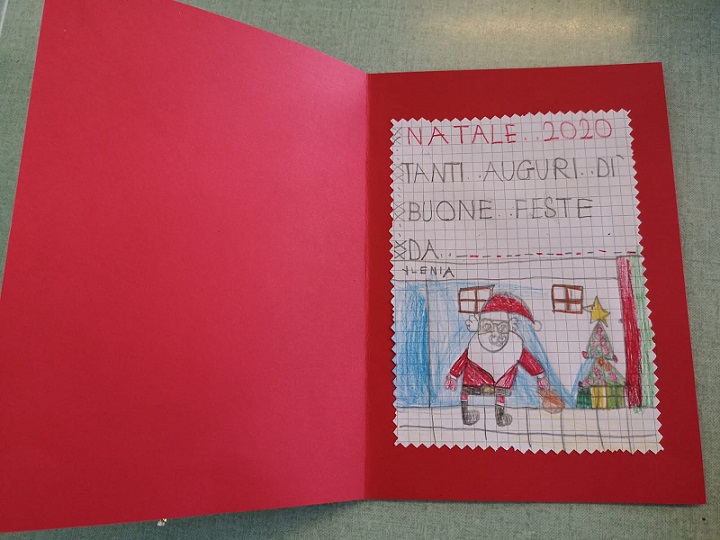 NATALE..2020
TANTI..AUGURI..DÌ
BUONE..FESTE
DA..
YLENIA